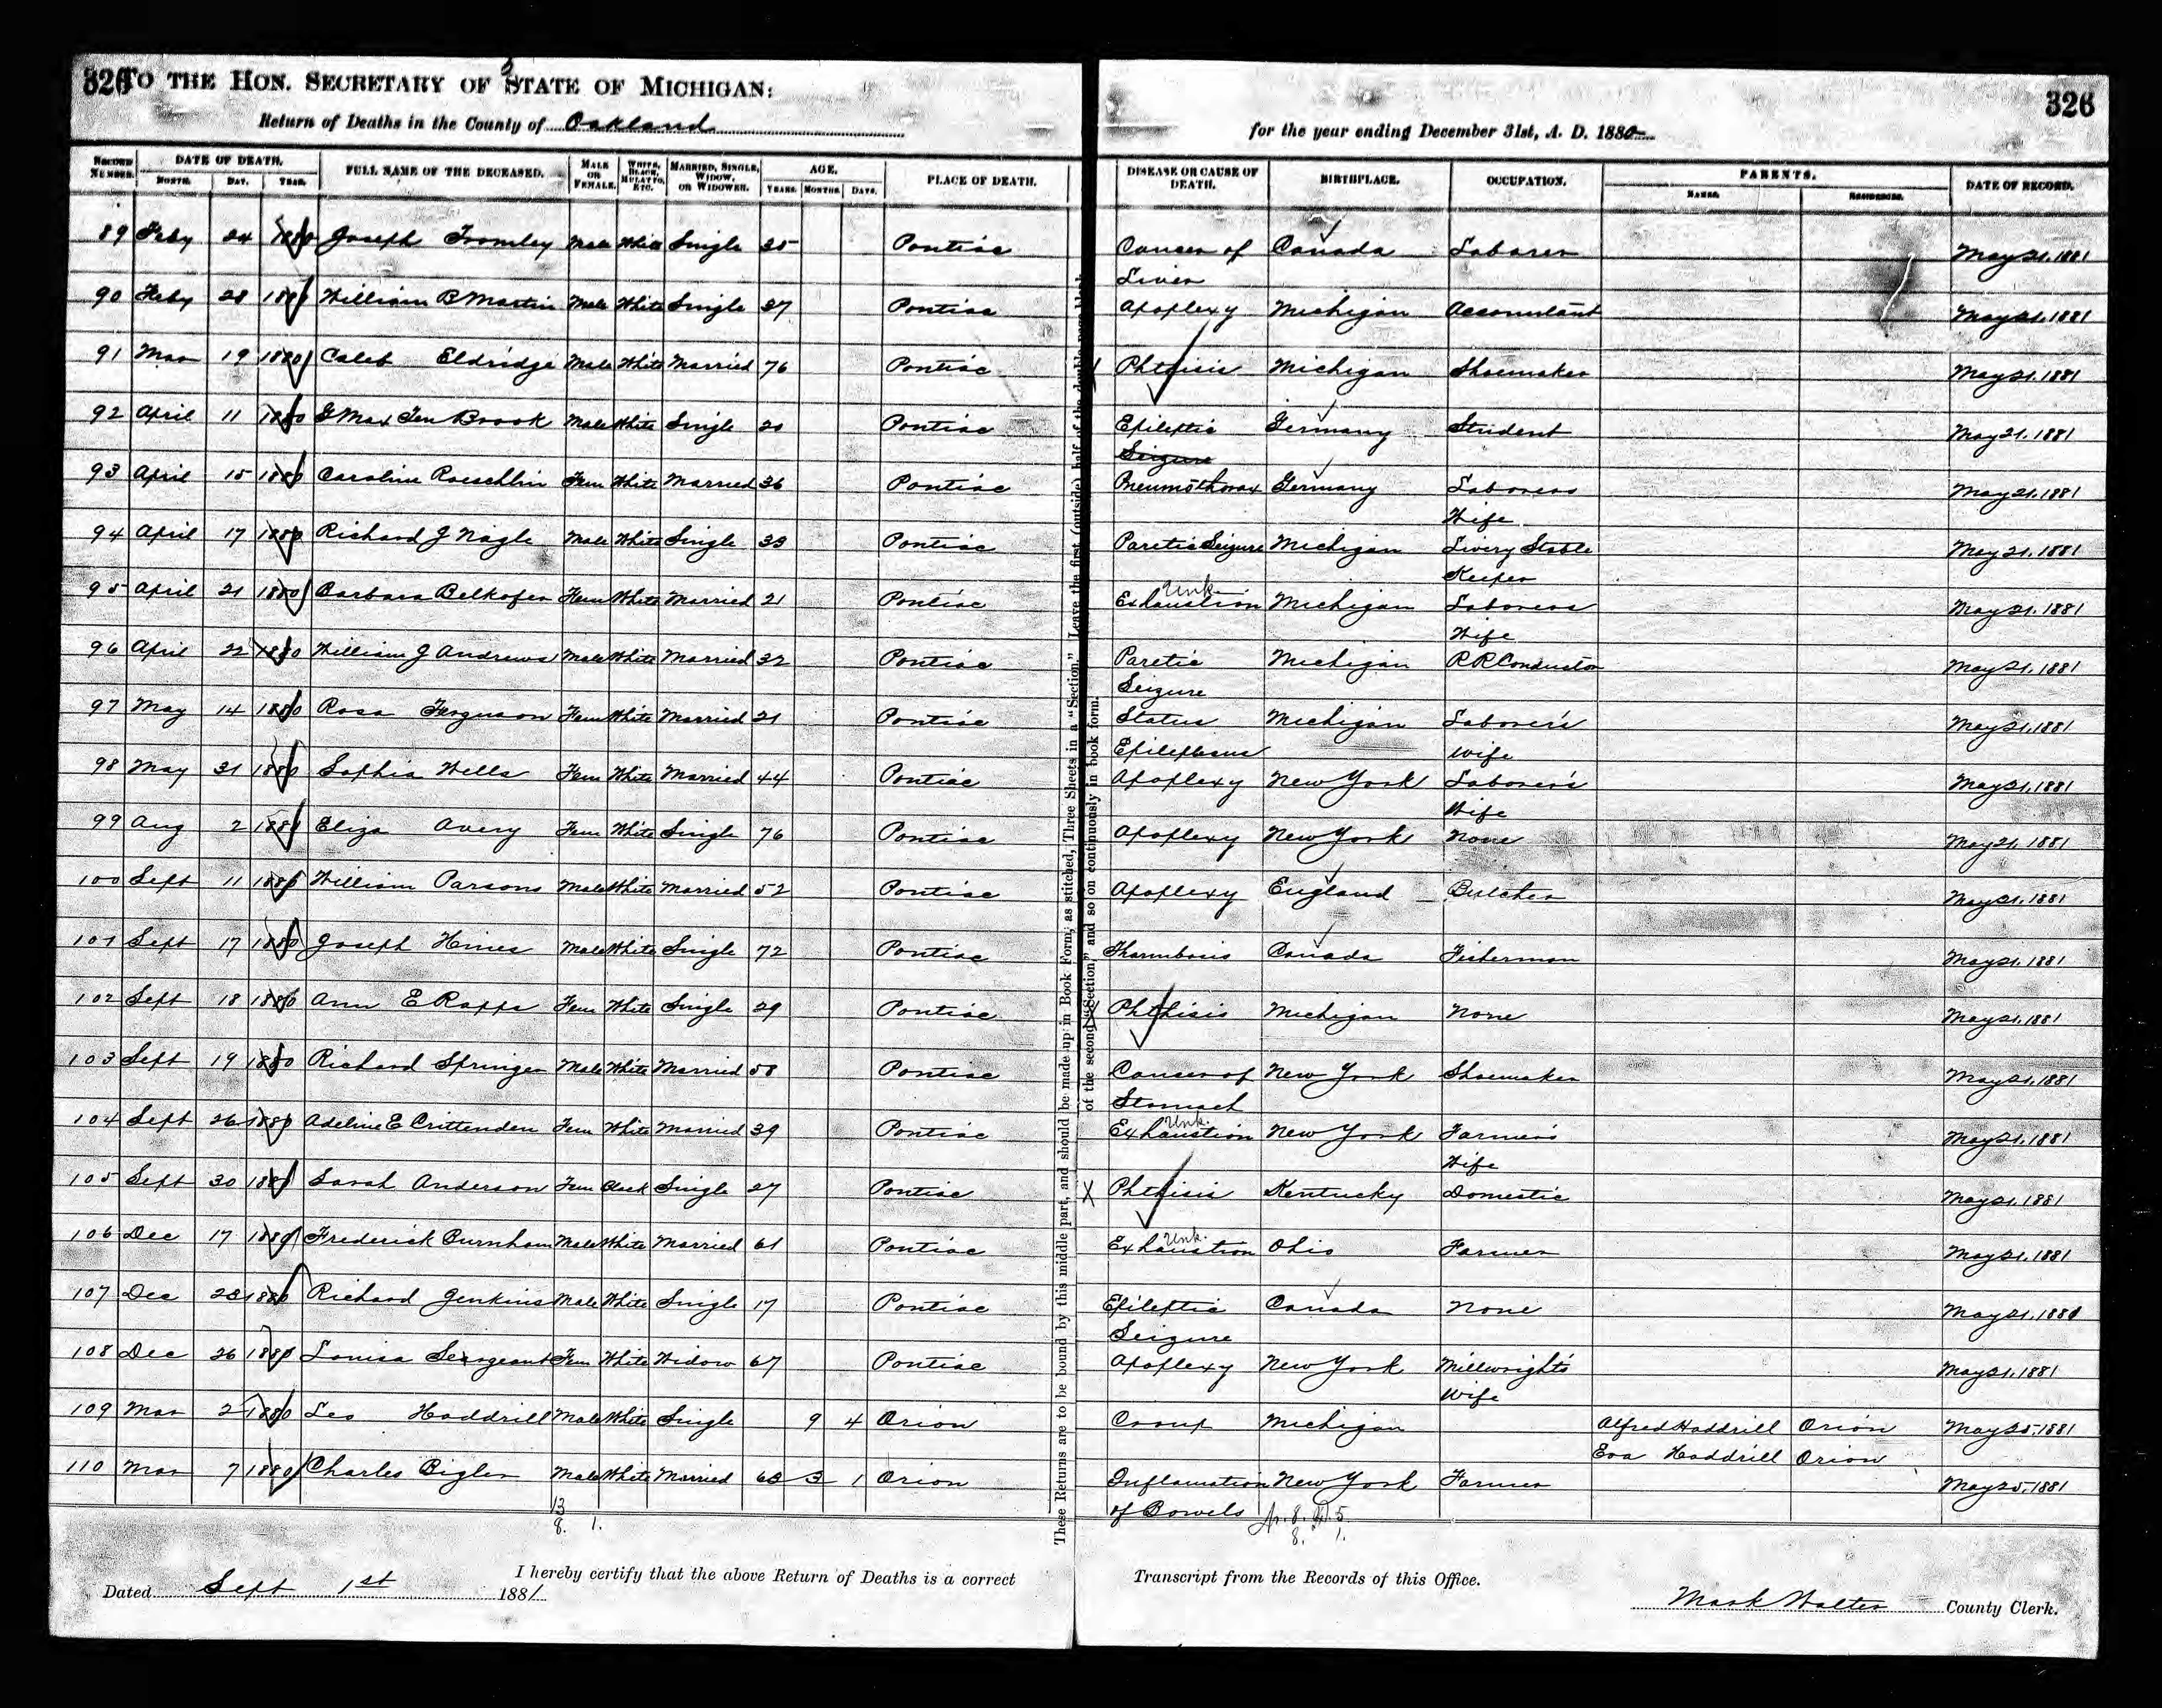 326 TO THE HON. SECRETARY OF STATE OF MICHIGAN: 326
Return of Deaths in the County of Oakland for the year ending December 31st, A. D. 1880
RECORD NUMBER. DATE OF DEATH. FULL NAME OF THE DECEASED. MALE OR FEMALE. WHITE, BLACK, MULATTO, ETC. MARRIED, SINGLE, WIDOW, OR WIDOWER. AGE. PLACE OF DEATH. DISEASE OR CAUSE OF DEATH. BIRTHPLACE. OCCUPATION. PARENTS. DATE OF RECORD.
MONTH. DAY. YEAR. YEARS. MONTHS. DAYS. NAMES. RESIDENCE.
89 Feby 24 1880 Joseph Tromley Male White Single 25 Pontiac Cancer of Liver Canada Laborer May 21, 1881
90 Feby 28 1880 William B Martin Male White Single 37 Pontiac Apoplexy Michigan Accountant May 21, 1881
91 Mar 19 1880 Caleb Eldridge Male White Married 76 Pontiac Phthisis Michigan Shoemaker May 21, 1881
92 April 11 1880 G Max Ten Brook Male White Single 20 Pontiac Epileptic Seizure Germany Student May 21, 1881
93 April 15 1880 Caroline Raeschlin Fem White Married 36 Pontiac Pneumothorax Germany Laborers Wife May 21, 1881
94 April 17 1880 Richard J Nagle Male White Single 33 Pontiac Paretic Seizure Michigan Livery Stable Keeper May 21, 1881
95 April 21 1880 Barbara Belkofer Fem White Married 21 Pontiac Exhaustion Unk. Michigan Laborers Wife May 21, 1881
96 April 22 1880 William J Andrews Male White Married 32 Pontiac Paretic Seizure Michigan R R Conductor May 21, 1881
97 May 14 1880 Rosa Ferguson Fem White Married 21 Pontiac Status Epileplecus Michigan Laborer's wife May 21, 1881
98 May 31 1880 Sophia Wells Fem White Married 44 Pontiac Apoplexy New York Laborer's Wife May 21, 1881
99 Aug 2 1880 Eliza Avery Fem White Single 76 Pontiac Apoplexy New York None May 21, 1881
100 Sept 11 1880 William Parsons Male White Married 52 Pontiac Apoplexy England Butcher May 21, 1881
101 Sept 17 1880 Joseph Hines Male White Single 72 Pontiac Thrombosis Canada Fisherman May 21, 1881
102 Sept 18 1880 Ann E Rapps Fem White Single 29 Pontiac X Phthisis Michigan None May 21, 1881
103 Sept 19 1880 Richard Springer Male White Married 58 Pontiac Cancer of Stomach New York Shoemaker May 21, 1881
104 Sept 26 1880 Adeline E Crittenden Fem White Married 39 Pontiac Exhaustion Unk. New York Farmer's Wife May 21, 1881
105 Sept 30 1880 Sarah Anderson Fem Black Single 27 Pontiac X Phthisis Kentucky Domestic May 21, 1881
106 Dec 17 1880 Frederick Burnham Male White Married 61 Pontiac Exhaustion Unk. Ohio Farmer May 21, 1881
107 Dec 23 1880 Richard Jenkins Male White Single 17 Pontiac Epileptic Seizure Canada None May 21, 1881
108 Dec 26 1880 Louisa Seargeant Fem White Widow 67 Pontiac Apoplexy New York Millwright's Wife May 21, 1881
109 Mar 2 1880 Leo Haddrill Male White Single 9 4 Orion Croup Michigan Alfred Haddrill Orion May 25, 1881
Eva Haddrill Orion
110 Mar 7 1880 Charles Bigler Male White Married 63 3 1 Orion Inflamation of Bowels New York Farmer May 25, 1881
13
8. 1.
8. 1.
These Returns are to be bound by this middle part, and should be made up in Book Form, as stitched, Three Sheets in a "Section." Leave the first (outside) half of the double page blank
of the second "Section," and so on continuously in book form.
I hereby certify that the above Return of Deaths is a correct Transcript from the Records of this Office.
Dated Sept 1st 1881 Mark Walter County Clerk.